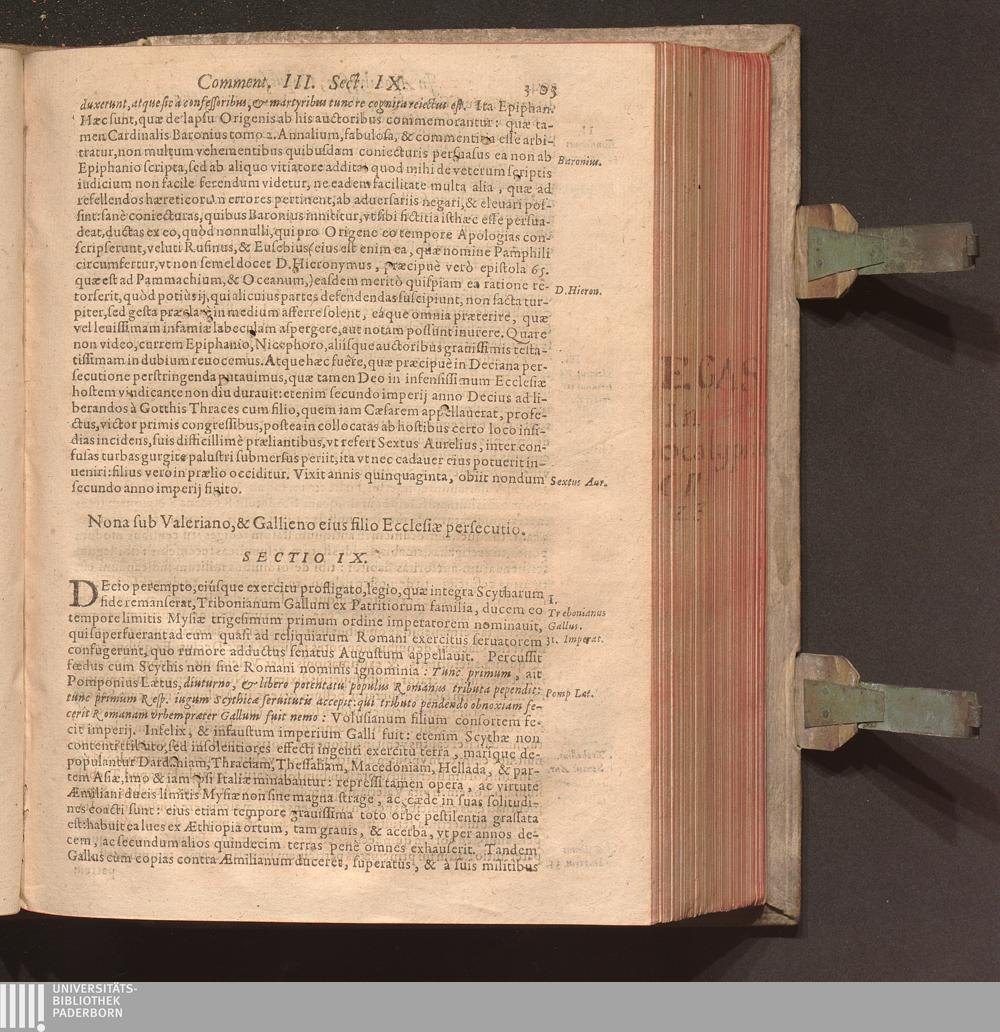 Comment. III. Sect. IX. 303
duxerunt, atque sic à confessoribus, & martyribus tunc re cognita reiectus est. Ita Epiphan.
Hæc sunt, quæ de lapsu Origenis ab his auctoribus commemorantur: quæ ta-
men Cardinalis Baronius tomo 2. Annalium, fabulosa, & commentitia esse arbi-
tratur, non multum vehementibus quibusdam coniecturis persuasus ea non ab
Baronius.
Epiphanio scripta, sed ab aliquo vitiatore addita: quod mihi de veterum scriptis
iudicium non facile ferendum videtur, ne eadem facilitate multa alia, quæ ad
refellendos hæreticorum errores pertinent, ab aduersariis negari, & eleuari pos-
sint: sanè coniecturas, quibus Baronius innititur, vt sibi fictitia isthæc esse persua-
deat, ductas ex eo, quòd nonnulli, qui pro Origene eo tempore Apologias con-
scripserunt, veluti Rufinus, & Eusebius (eius est enim ea, quæ nomine Pamphili
circumfertur, vt non semel docet D. Hieronymus, præcipuè verò epistola 65.
quæ est ad Pammachium, & Oceanum,) easdem meritò quispiam ea ratione re-
D. Hieron.
torserit, quòd potiùs ij, qui alicuius partes defendendas suscipiunt, non facta tur-
piter, sed gesta præclarè in medium afferre solent, eáque omnia præterire, quæ
vel leuissimam infamiæ labeculam aspergere, aut notam possunt inurere. Quare
non video, cur rem Epiphanio, Nicephoro, aliisque auctoribus grauissimis testa-
tissimam in dubium reuocemus. Atque hæc fuêre, quæ præcipuè in Deciana per-
secutione perstringenda putauimus, quæ tamen Deo in infensissimum Ecclesiæ
hostem vindicante non diu durauit: etenim secundo imperij anno Decius ad li-
berandos à Gotthis Thraces cum filio, quem iam Cæsarem appellauerat, profe-
ctus, victor primis congressibus, postea in collocatas ab hostibus certo loco insi-
dias incidens, suis difficillimè præliantibus, vt refert Sextus Aurelius, inter con-
fusas turbas gurgite palustri submersus periit; ita vt nec cadauer eius potuerit in-
ueniri: filius vero in prælio occiditur. Vixit annis quinquaginta, obiit nondum
Sextus Aur.
secundo anno imperij finito.
Nona sub Valeriano, & Gallieno eius filio Ecclesiæ persecutio.
SECTIO IX.
DEcio perempto, eiúsque exercitu profligato, legio, quæ integra Scytharum
1.
fide remanserat, Tribonianum Gallum ex Patritiorum familia, ducem eo
Trebonianus
tempore limitis Mysiæ trigesimum primum ordine imperatorem nominauit,
Gallus.
qui superfuerant ad eum quasi ad reliquiarum Romani exercitus seruatorem
31. Imperat.
confugerunt, quo rumore adductus senatus Augustum appellauit. Percussit
fœdus cum Scythis non sine Romani nominis ignominia: Tunc primum, ait
Pomponius Lætus, diuturno, & libero potentatu populus Romanus tributa pependit:
Pomp Læt.
tunc primum Resp. iugum Scythicæ seruitutis accepit: qui tributo pendendo obnoxiam fe-
cerit Romanam vrbem præter Gallum fuit nemo: Volusianum filium consortem fe-
cit imperij. Infelix, & infaustum imperium Galli fuit: etenim Scythæ non
contenti tributo, sed insolentiores effecti ingenti exercitu terra, marique de-
populantur Dardaniam, Thraciam, Thessaliam, Macedoniam, Hellada, & par-
tem Asiæ, imo & iam ipsi Italiæ minabantur: repressi tamen opera, ac virtute
Æmiliani ducis limitis Mysiæ non sine magna strage, ac cæde in suas solitudi-
nes coacti sunt: eius etiam tempore grauissima toto orbe pestilentia grassata
est: habuit ea lues ex Æthiopia ortum, tam grauis, & acerba, vt per annos de-
cem, ac secundum alios quindecim terras penè omnes exhauserit. Tandem
Gallus cum copias contra Æmilianum duceret, superatus, & à suis militibus
UNIVERSITÄTS-
BIBLIOTHEK
PADERBORN